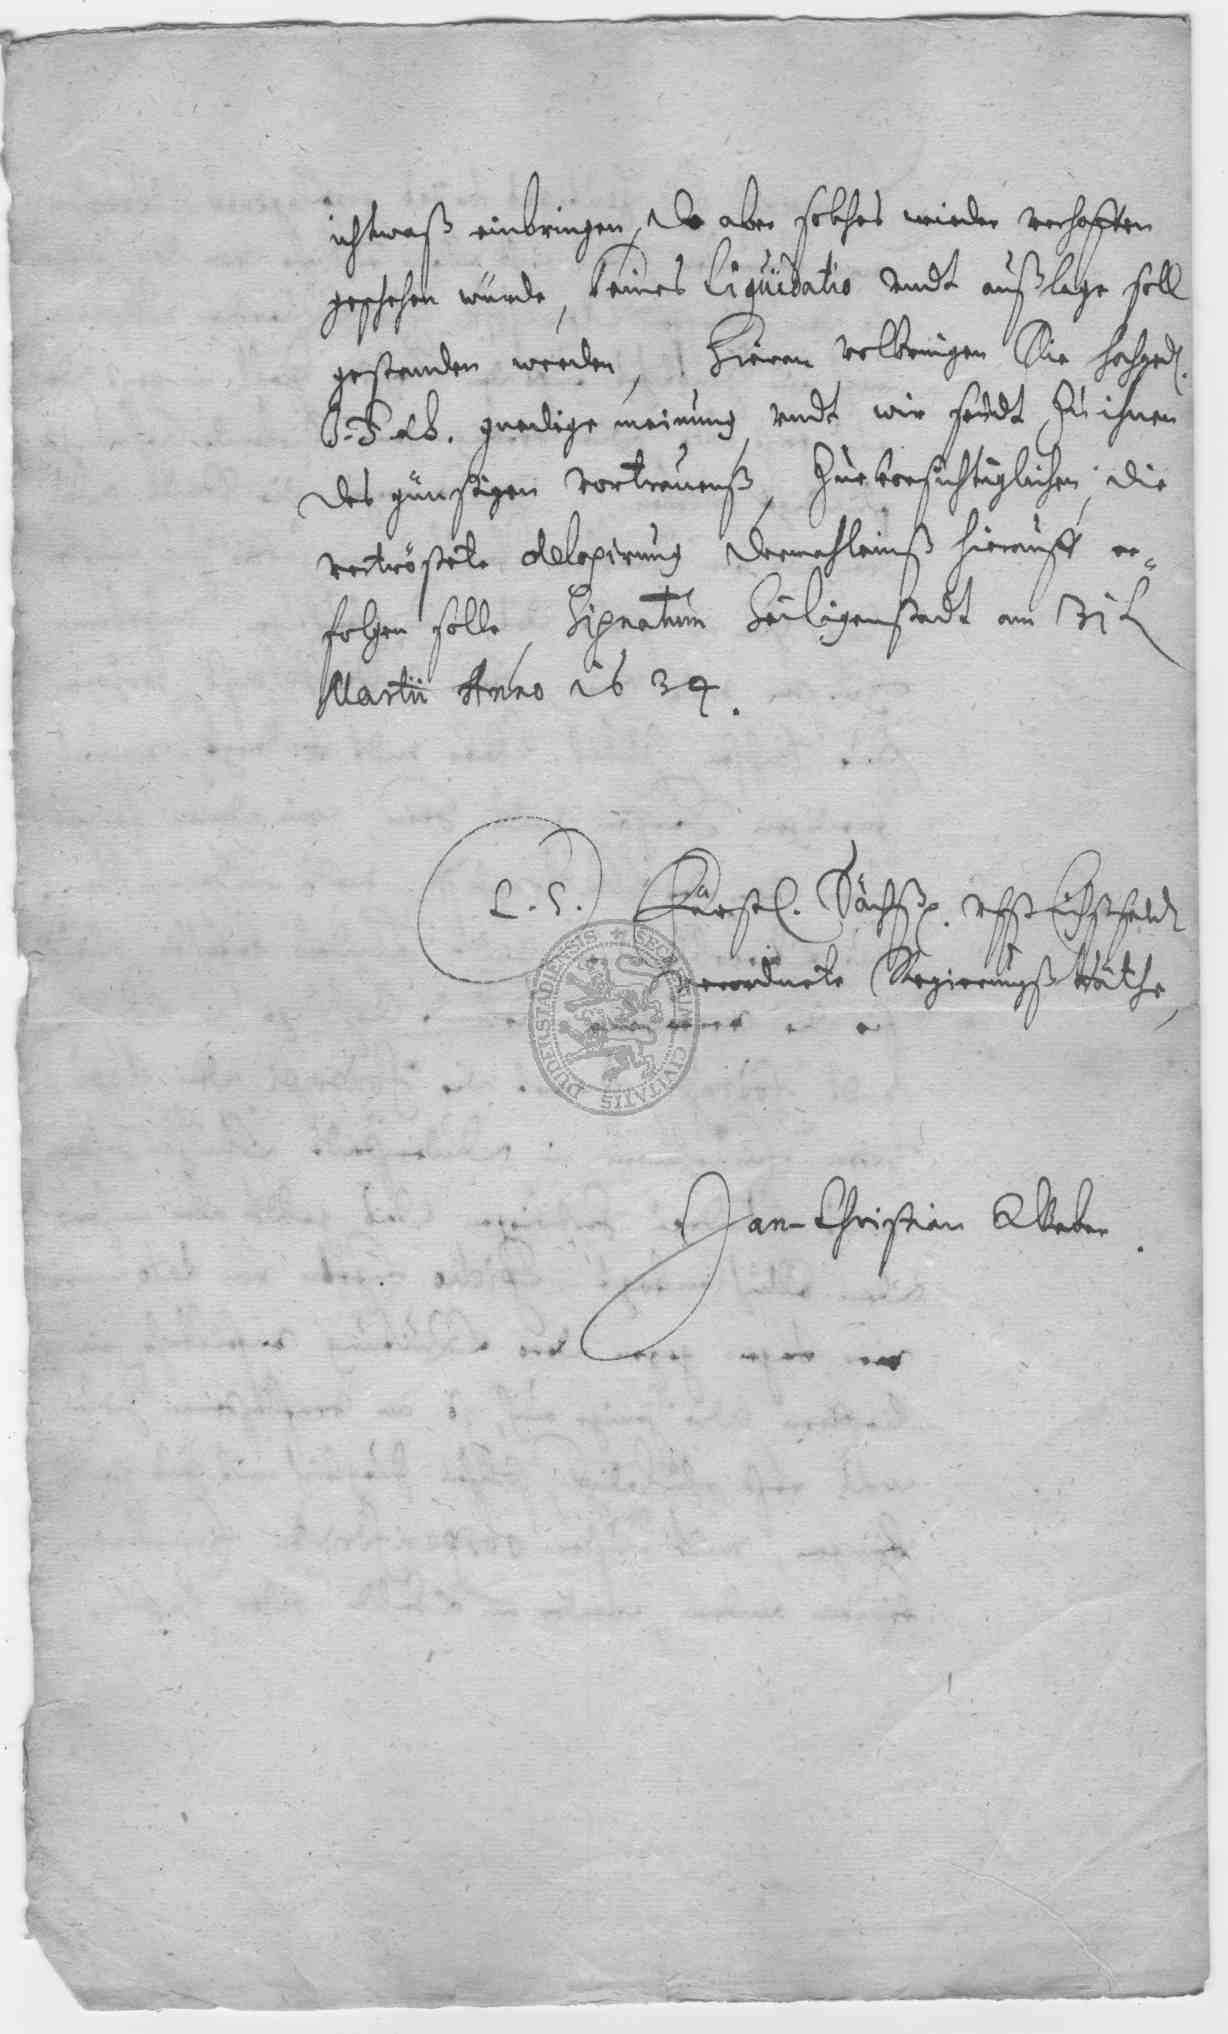 ichtwaß einbringen, Do aber solches wieder verhoffen
geschehen würde, keines Liquidatio undt außlage soll
gestanden werden, Hieran volbringen Die hochged.
I. F. G. gnedige meinung, undt wir seindt Zu ihnen
des günstigen vortrauenß, Zuevorsichtiglichen, die
vertröstete ablegirung dermahleinß hierauff er¬
folgen solle, Signatum Heiligenstadt am 31t
Martii Anno 1634.
L. S. Fürstl. Sächß. uffst Eichßfeld
verordnete Regierungß Räthe,
SECRETUM CIVITATIS DUDERSTADIENSIS
Jan-Christian Weber.